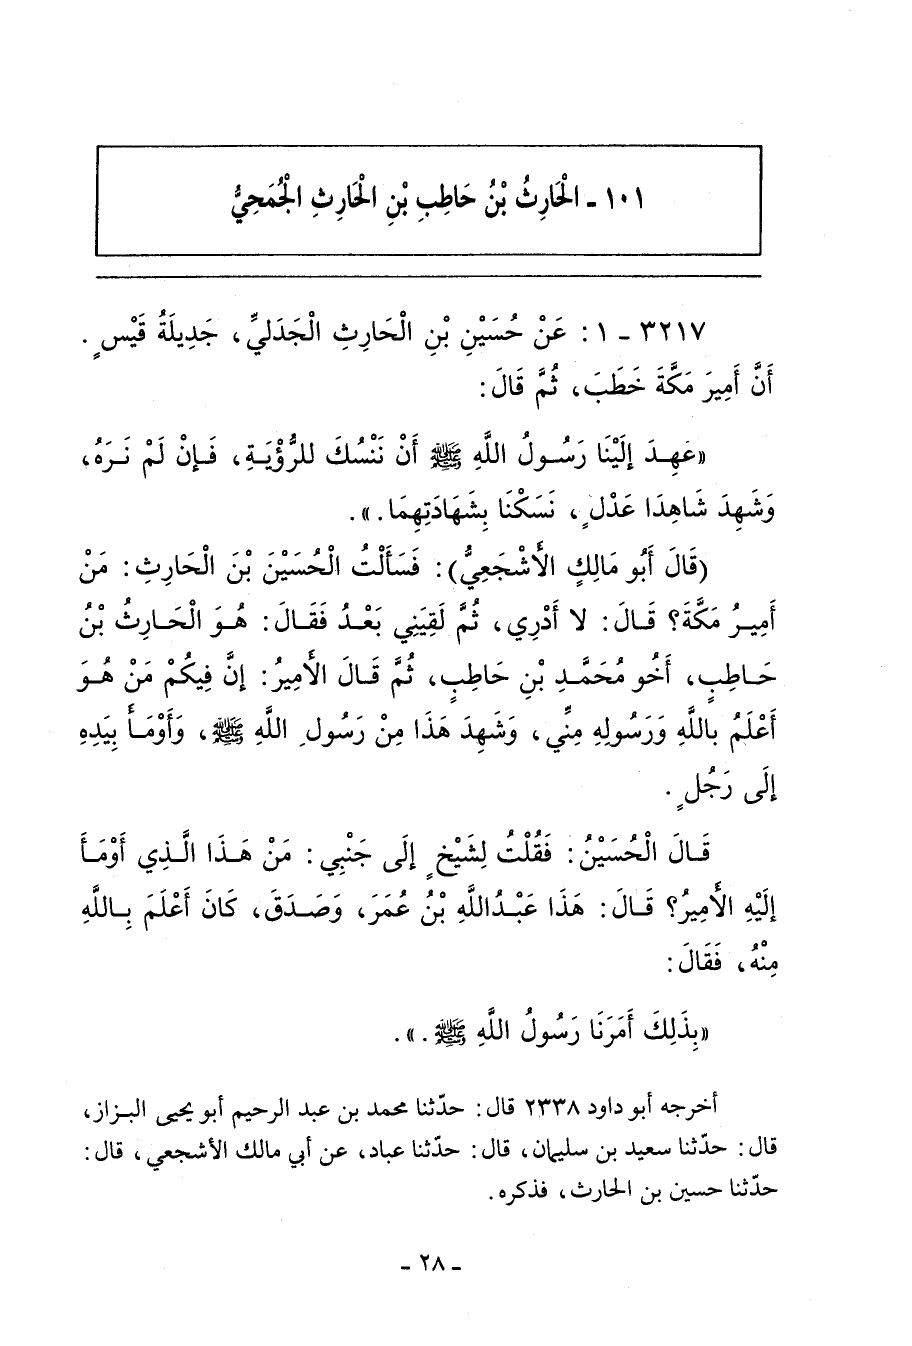 ١٠١ - الْحَارِثُ بْنُ حَاطِبِ بْنِ الْحَارِثِ الْجُمَحِيُّ
٣٢١٧ - ١ : عَنْ حُسَيْنِ بْنِ الْحَارِثِ الْجَدَلِيِّ، جَدِيلَةُ قَيْسٍ .
أَنَّ أَمِيرَ مَكَّةَ خَطَبَ، ثُمَّ قَالَ:
«عَهِدَ إِلَيْنَا رَسُولُ اللَّهِ ﷺ أَنْ نَنْسُكَ للرُّؤْيَةِ، فَإِنْ لَمْ نَرَهُ،
وَشَهِدَ شَاهِدَا عَدْلٍ ، نَسَكْنَا بِشَهَادَتِهِمَا.».
(قَالَ أَبُو مَالِكٍ الأَشْجَعِيُّ): فَسَأَلْتُ الْحُسَيْنَ بْنَ الْحَارِثِ: مَنْ
أَمِيرُ مَكَّةَ؟ قَالَ: لا أَدْرِي، ثُمَّ لَقِيَنِي بَعْدُ فَقَالَ: هُوَ الْحَارِثُ بْنُ
حَاطِبٍ، أَخُو مُحَمَّدِ بْنِ حَاطِبٍ، ثُمَّ قَالَ الأَمِيرُ: إِنَّ فِيكُمْ مَنْ هُوَ
أَعْلَمُ بِاللَّهِ وَرَسُولِهِ مِنِّي، وَشَهِدَ هَذَا مِنْ رَسُولِ اللَّهِ ﷺ، وَأَوْمَأَ بِيَدِهِ
إِلَى رَجُلٍ .
قَالَ الْحُسَيْنُ: فَقُلْتُ لِشَيْخٍ إِلَى جَنْبِي: مَنْ هَذَا الَّذِي أَوْمَأَ
إِلَيْهِ الأَمِيرُ؟ قَالَ: هَذَا عَبْدُاللَّهِ بْنُ عُمَرَ، وَصَدَقَ، كَانَ أَعْلَمَ بِاللَّهِ
مِنْهُ، فَقَالَ:
«بِذَلِكَ أَمَرَنَا رَسُولُ اللَّهِ ﷺ.».
أخرجه أبو داود ٢٣٣٨ قال: حدّثنا محمد بن عبد الرحيم أبو يحيى البزاز،
قال: حدّثنا سعيد بن سليمان، قال: حدّثنا عباد، عن أبي مالك الأشجعي، قال:
حدّثنا حسين بن الحارث، فذكره.
- ٢٨ -